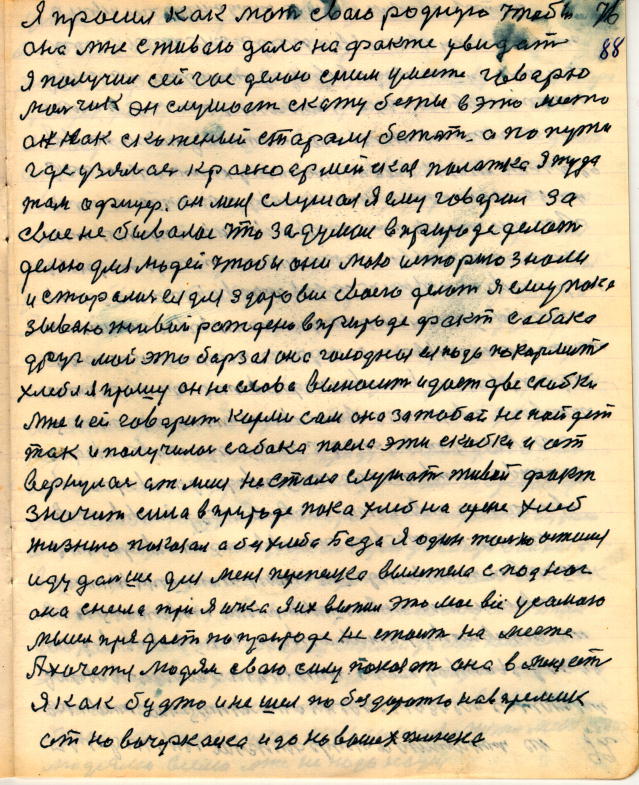 Я просил как мат сваю родную чтобы 76
она мне с живаю дала на факте увидат 88
я получил сей час делаю с ним умеете говарю
малчик он слушает скажу бежы в это место
он как скаженый старался бежат. а по пути
где узялас красноармейская палатка я туда
там офицер. он меня слушал я ему говарил за
свае не бывалае что задумал в природе делат
делаю для людей чтобы они маю историю знали
и старалися для здоровие своего делат я ему пака
зываю живой рождено в природе факт сабака
друг мой это барзая она голодная
хлебa я прошу он не слова выносит и дает две скобки
мне и ей говарит корми сам она за табай не пайдет
так и получилос сабака поела эти скобки и от
вернулас от меня не стала слушат живой факт
значит сила в природе пока хлеб на арене хлеб
жизнию показал а без хлеба беда я один толко остался
иду далше для меня перепелка вылетела с под ног
она снесла три яичка я их выпил это мае всё у самаю
мысл придает по природе не стоит на месте
А хочется людям сваю силу показат она в мене ест
я как будто и не шел по бездарожю навпремик
от новачеркаска и до наваших